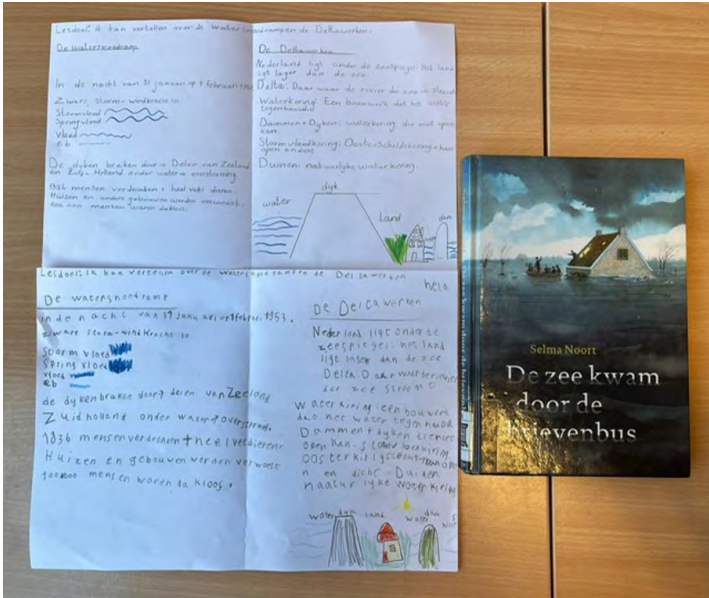 Lesdoel: ik kan vertellen over de Watersnoodramp en de Deltawerken.
De Watersnoodramp
In de nacht van 31 januari op 1 februari 1953
Zware storm - windkracht 10
Stormvloed
Springvloed
Vloed
eb
De dijken braken door → Delen van Zeeland
en Zuid-Holland onder water → overstroming
1836 mensen verdronken + heel veel dieren.
Huizen en andere gebouwen werden verwoest.
100.000 mensen waren dakloos.
De Deltawerken
Nederland ligt onder de zeespiegel: Het land
ligt lager dan de zee.
Delta: Daar waar de rivier de zee in stroomt
Waterkering: Een bouwwerk dat het water
tegenhoudt
Dammen + Dyken: waterkering die niet open
kan.
Stormvloedkering: Oosterscheldekering → kan
open en dicht
Duinen: natuurlijke waterkering.
dyk
water
land
dam
Lesdoel: Ik kan vertellen over de watersnoodramp en de Deltawerken
De watersnoodramp
in de nacht van 31 januari op 1 februari 1953.
zware storm - windkracht 10
Storm vloed
Spring vloed
vloed
eb
de dyken braken door → delen van Zeeland
Zuid holland onder water →
1836 mensen verdronken + heel veel dieren
Huizen en gebouwen werden verwoest
100000 mensen waren dakloos.
De Deltawerken
Nederland ligt onder de
zeespiegel: het land
ligt lager dan de zee
Delta:
der zee stroomt
waterkiring een bouwerk
dat het water tegenhoud
Dammen + dyken
open kan.
n en dicht Duinen
natuurlyke waterkiring
water dyk land water dam
Selma Noort
De zee kwam
door de
brievenbus